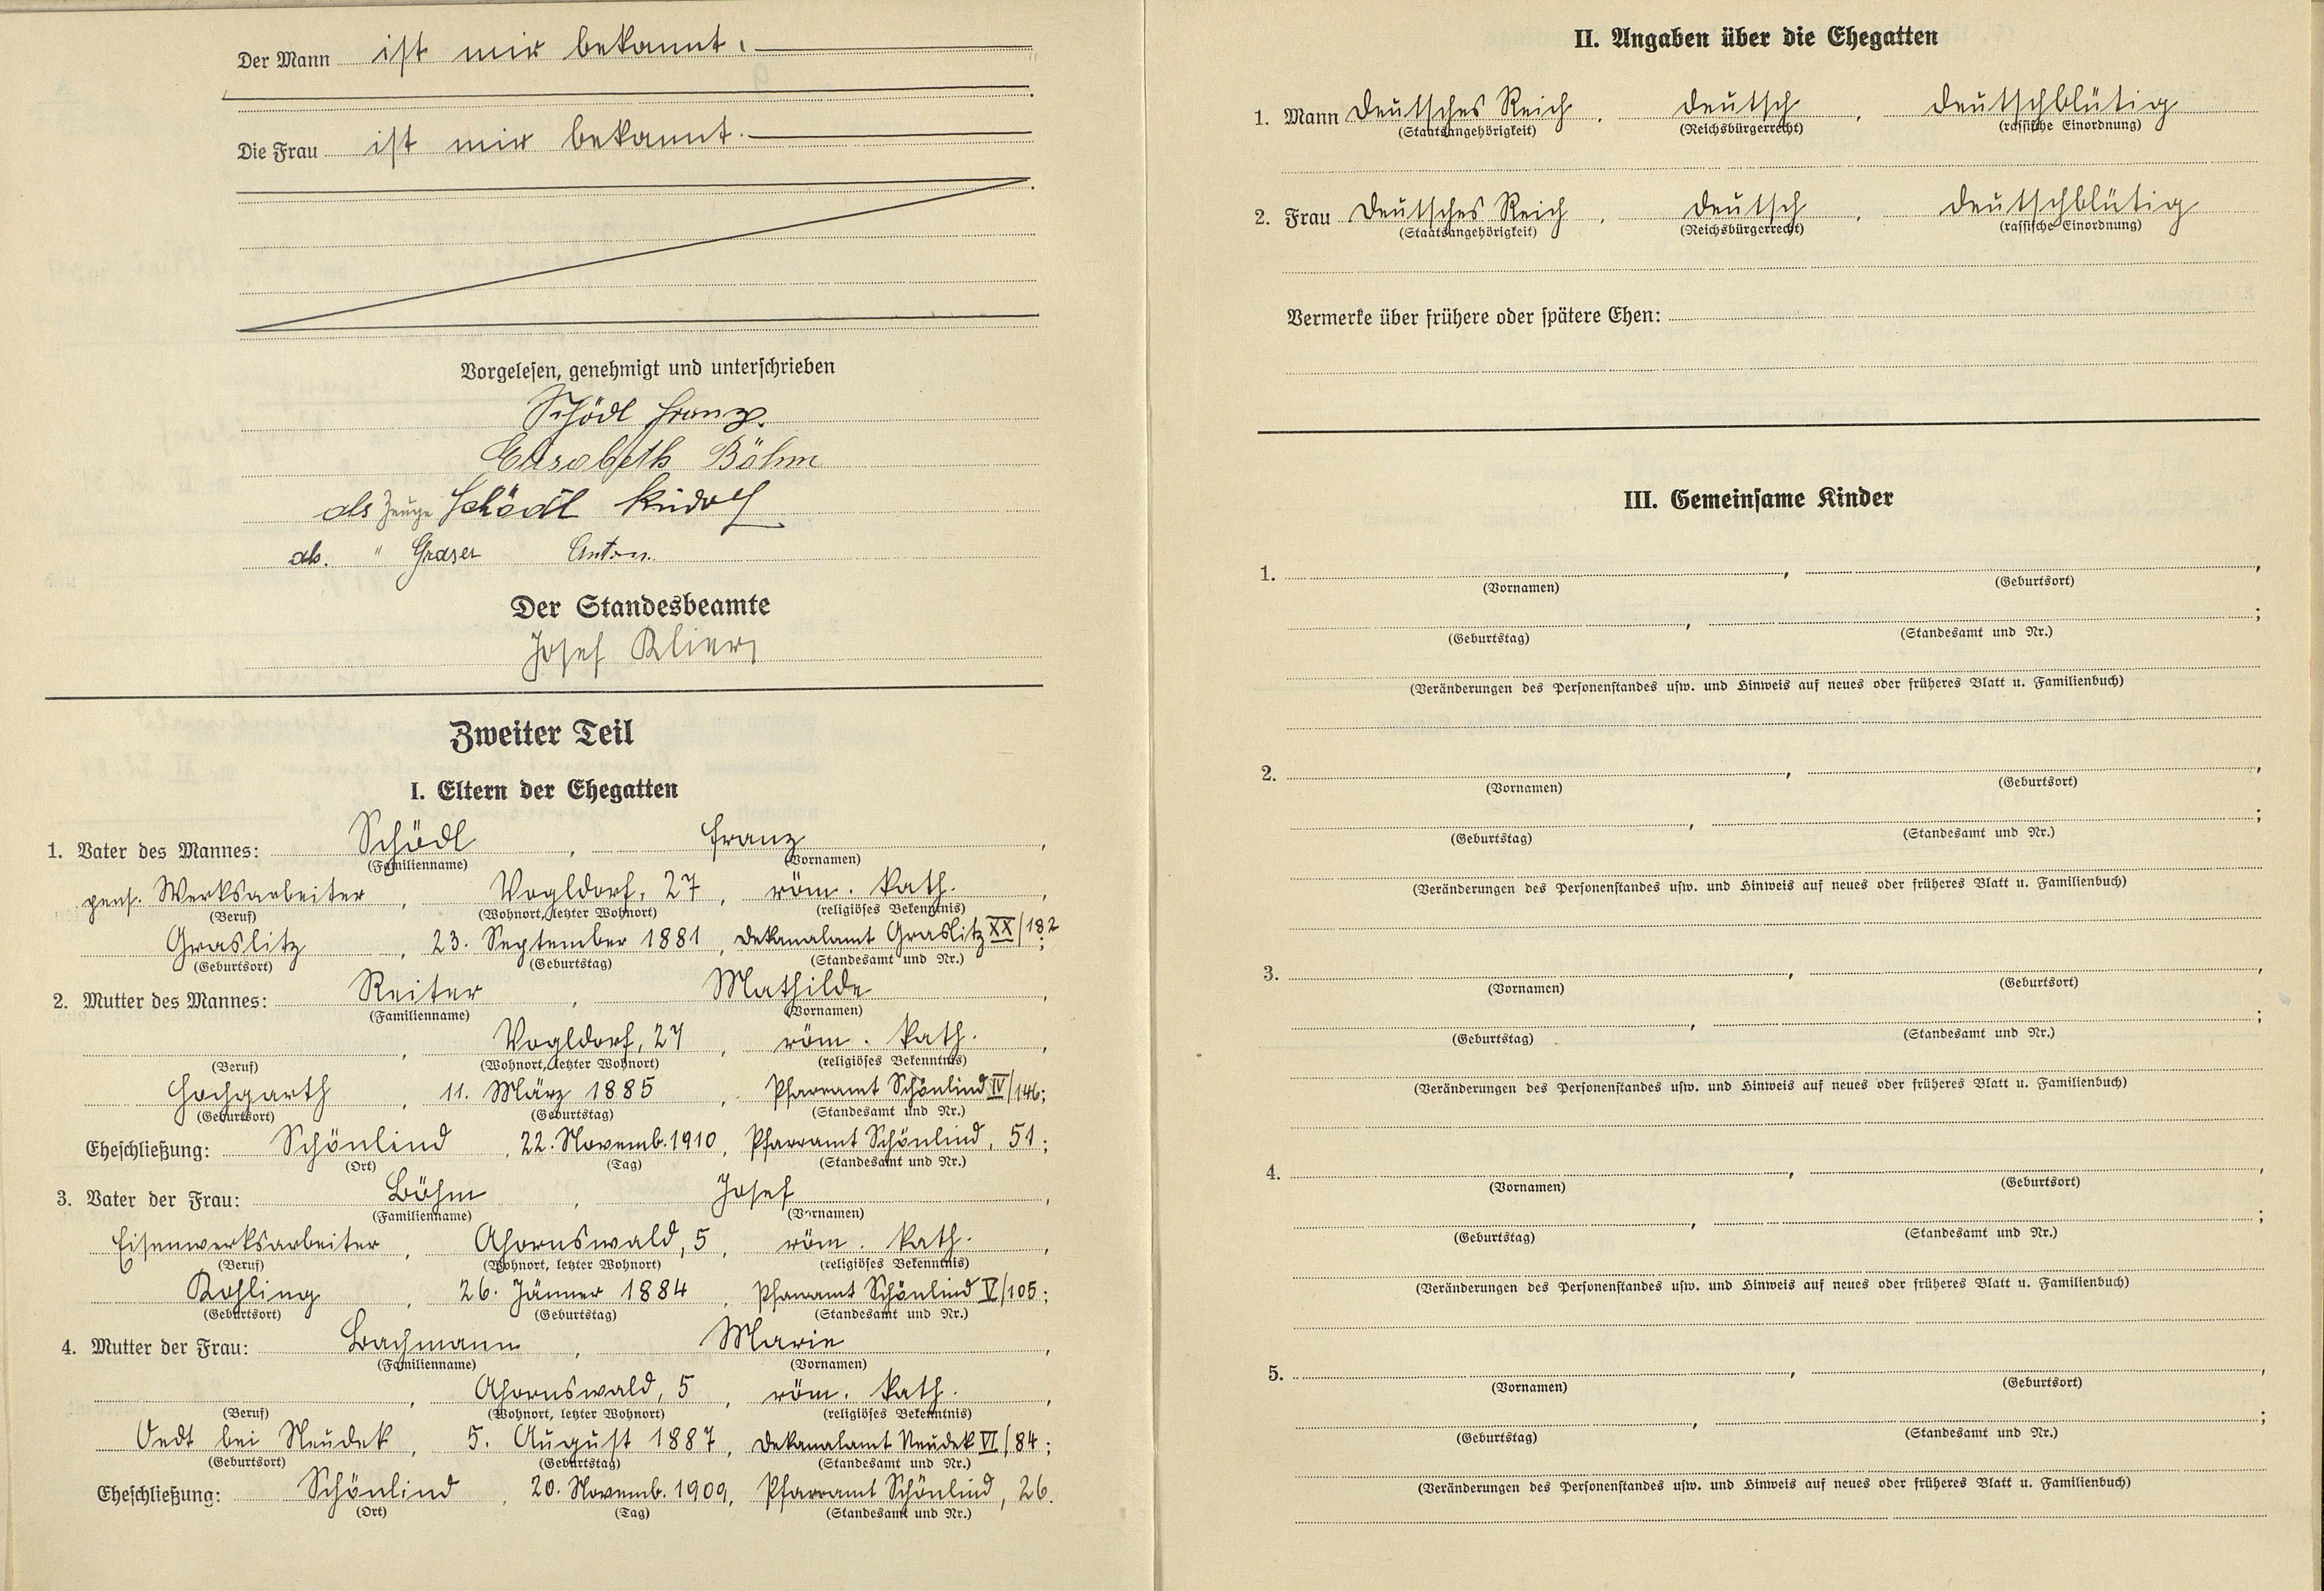 Der Mann ist mir bekannt.
Die Frau ist mir bekannt.
Vorgelesen, genehmigt und unterschrieben
Schödl Franz.
Elisabeth Böhm
als Zeuge Schödl Rudolf
als. " Graser Anton.
Der Standesbeamte
Josef Klier
Zweiter Teil
I. Eltern der Ehegatten
1. Vater des Mannes: Schödl, Franz,
(Familienname) (Vornamen)
pens. Werksarbeiter, Vogldorf, 27, röm. kath.,
(Beruf) (Wohnort, letzter Wohnort) (religiöses Bekenntnis)
Graslitz, 23. September 1881, Dekanalamt Graslitz XX/182;
(Geburtsort) (Geburtstag) (Standesamt und Nr.)
2. Mutter des Mannes: Reiter, Mathilde,
(Familienname) (Vornamen)
, Vogldorf, 27, röm. kath.,
(Beruf) (Wohnort, letzter Wohnort) (religiöses Bekenntnis)
Hochgarth, 11. März 1885, Pfarramt Schönlind IV/146;
(Geburtsort) (Geburtstag) (Standesamt und Nr.)
Eheschließung: Schönlind, 22. Novemb. 1910, Pfarramt Schönlind, 51;
(Ort) (Tag) (Standesamt und Nr.)
3. Vater der Frau: Böhm, Josef,
(Familienname) (Vornamen)
Eisenwerksarbeiter, Ahornswald, 5, röm. kath.,
(Beruf) (Wohnort, letzter Wohnort) (religiöses Bekenntnis)
Kohling, 26. Jänner 1884, Pfarramt Schönlind V/105;
(Geburtsort) (Geburtstag) (Standesamt und Nr.)
4. Mutter der Frau: Bachmann, Marie,
(Familienname) (Vornamen)
, Ahornswald, 5, röm. kath.,
(Beruf) (Wohnort, letzter Wohnort) (religiöses Bekenntnis)
Oedt bei Neudek, 5. August 1887, Dekanalamt Neudek VI/84;
(Geburtsort) (Geburtstag) (Standesamt und Nr.)
Eheschließung: Schönlind, 20. Novemb. 1909, Pfarramt Schönlind, 26.
(Ort) (Tag) (Standesamt und Nr.)
II. Angaben über die Ehegatten
1. Mann Deutsches Reich, deutsch, deutschblütig
(Staatsangehörigkeit) (Reichsbürgerrecht) (rassische Einordnung)
2. Frau Deutsches Reich, deutsch, deutschblütig
(Staatsangehörigkeit) (Reichsbürgerrecht) (rassische Einordnung)
Vermerke über frühere oder spätere Ehen:
III. Gemeinsame Kinder
1. , ,
(Vornamen) (Geburtsort)
, ;
(Geburtstag) (Standesamt und Nr.)
(Veränderungen des Personenstandes usw. und Hinweis auf neues oder früheres Blatt u. Familienbuch)
2. , ,
(Vornamen) (Geburtsort)
, ;
(Geburtstag) (Standesamt und Nr.)
(Veränderungen des Personenstandes usw. und Hinweis auf neues oder früheres Blatt u. Familienbuch)
3. , ,
(Vornamen) (Geburtsort)
, ;
(Geburtstag) (Standesamt und Nr.)
(Veränderungen des Personenstandes usw. und Hinweis auf neues oder früheres Blatt u. Familienbuch)
4. , ,
(Vornamen) (Geburtsort)
, ;
(Geburtstag) (Standesamt und Nr.)
(Veränderungen des Personenstandes usw. und Hinweis auf neues oder früheres Blatt u. Familienbuch)
5. , ,
(Vornamen) (Geburtsort)
, ;
(Geburtstag) (Standesamt und Nr.)
(Veränderungen des Personenstandes usw. und Hinweis auf neues oder früheres Blatt u. Familienbuch)